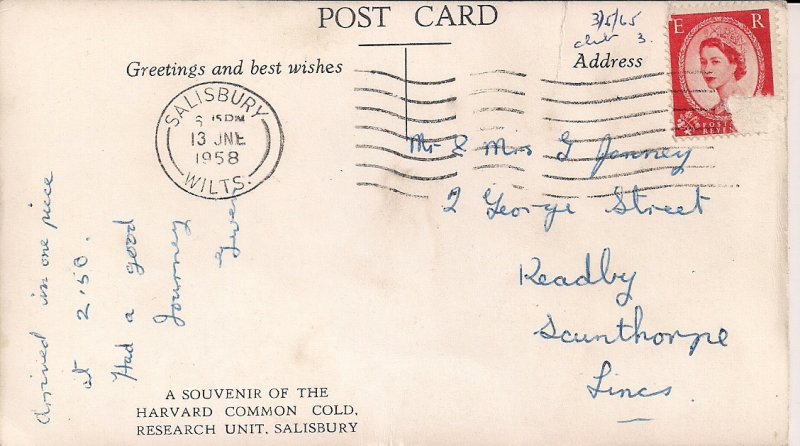 POST CARD
3/5/65
Greetings and best wishes
Address
E R
POST
REVE
SALISBURY
6 15 PM
13 JNE
1958
WILTS.
Mr & Mrs G Jenney
2 George Street
Keadby
Scunthorpe
Lincs.
Arrived in one piece
at 2.50.
Had a good
Journey
Gwen
A SOUVENIR OF THE
HARVARD COMMON COLD,
RESEARCH UNIT, SALISBURY